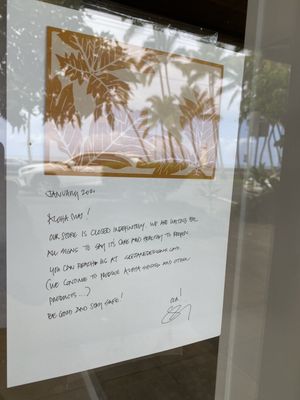 JANUARY 2021
ALOHA
OUR STORE IS CLOSED INDEFINITELY. WE ARE WAITING FOR
ALL SIGNS TO SAY IT'S SAFE AND HEALTHY TO REOPEN.
YOU CAN REACH US AT
(WE CONTINUE TO PRODUCE ALOHA SHIRTS AND OTHER
PRODUCTS...)
BE GOOD AND STAY SAFE!